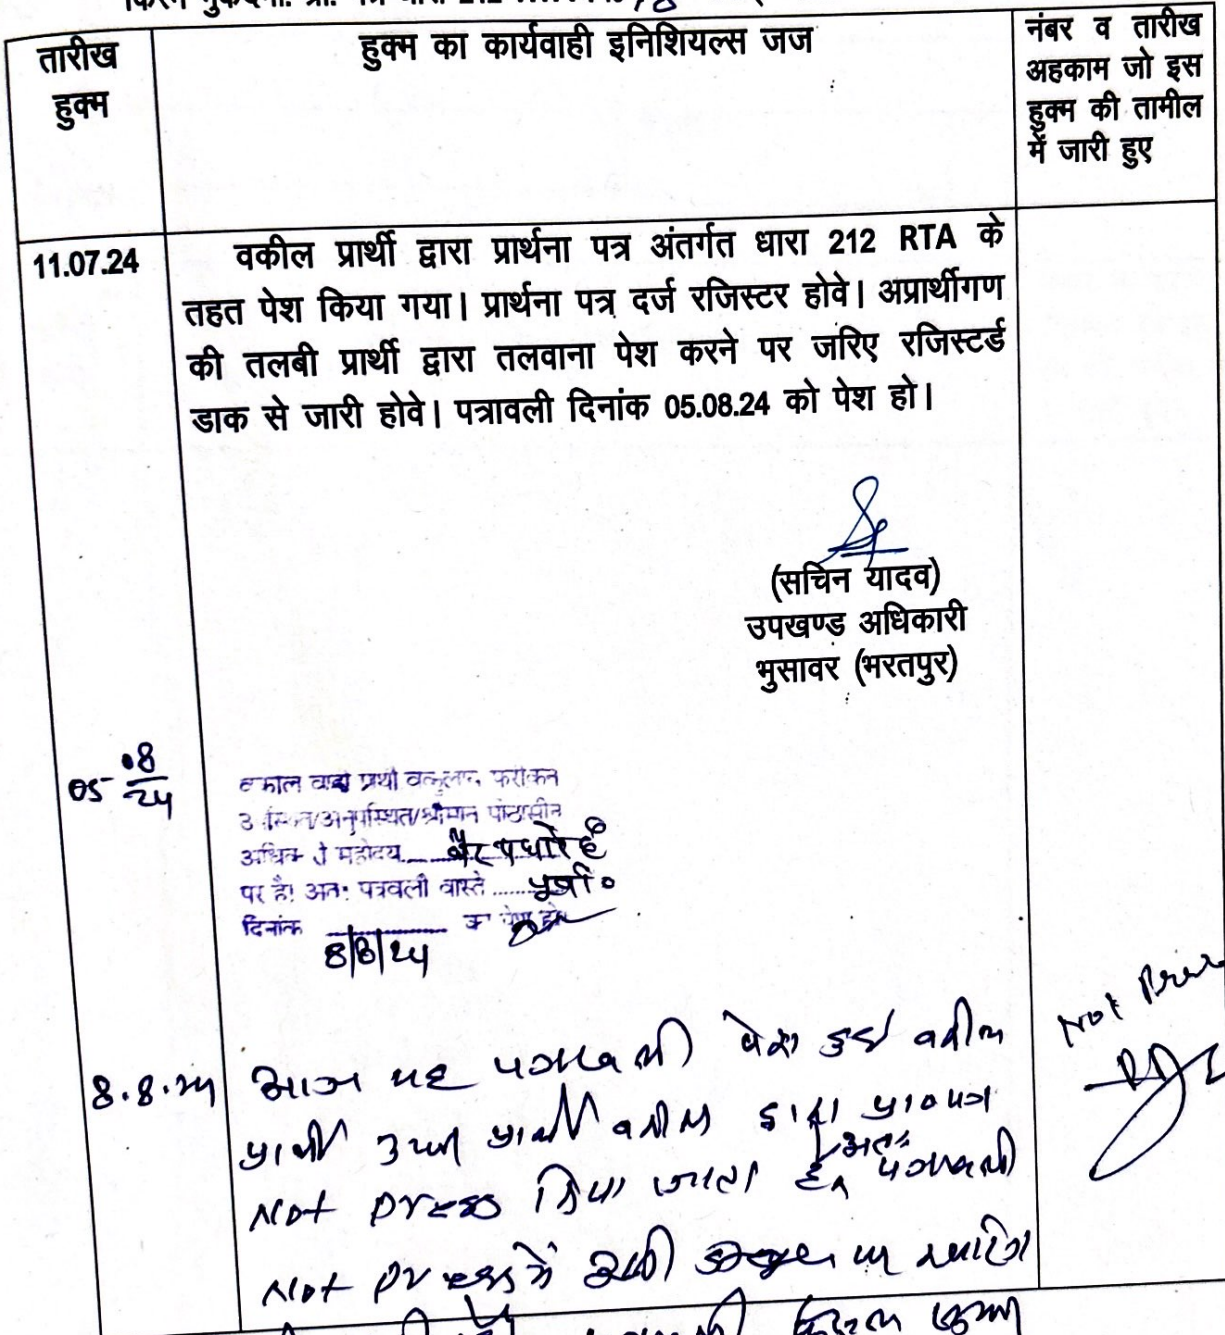 तारीख
हुक्म
हुक्म का कार्यवाही इनिशियल्स जज
नंबर व तारीख
अहकाम जो इस
हुक्म की तामील
में जारी हुए
11.07.24
वकील प्रार्थी द्वारा प्रार्थना पत्र अंतर्गत धारा 212 RTA के
तहत पेश किया गया। प्रार्थना पत्र दर्ज रजिस्टर होवे। अप्रार्थीगण
की तलबी प्रार्थी द्वारा तलवाना पेश करने पर जरिए रजिस्टर्ड
डाक से जारी होवे। पत्रावली दिनांक 05.08.24 को पेश हो।
(सचिन यादव)
उपखण्ड अधिकारी
भुसावर (भरतपुर)
05-08/24
अनुपस्थित/श्रीमान
महोदय
पर है। अतः पत्रवली वास्ते
दिनांक
8/8/24
8.8.24
आज यह पत्रावली पेश हुई वकील
प्रार्थी उप० प्रार्थी वकील द्वारा प्रा०पत्र
Not press किया जाता है अतः पत्रावली
Not press में इसी पर खारिज
Not Press